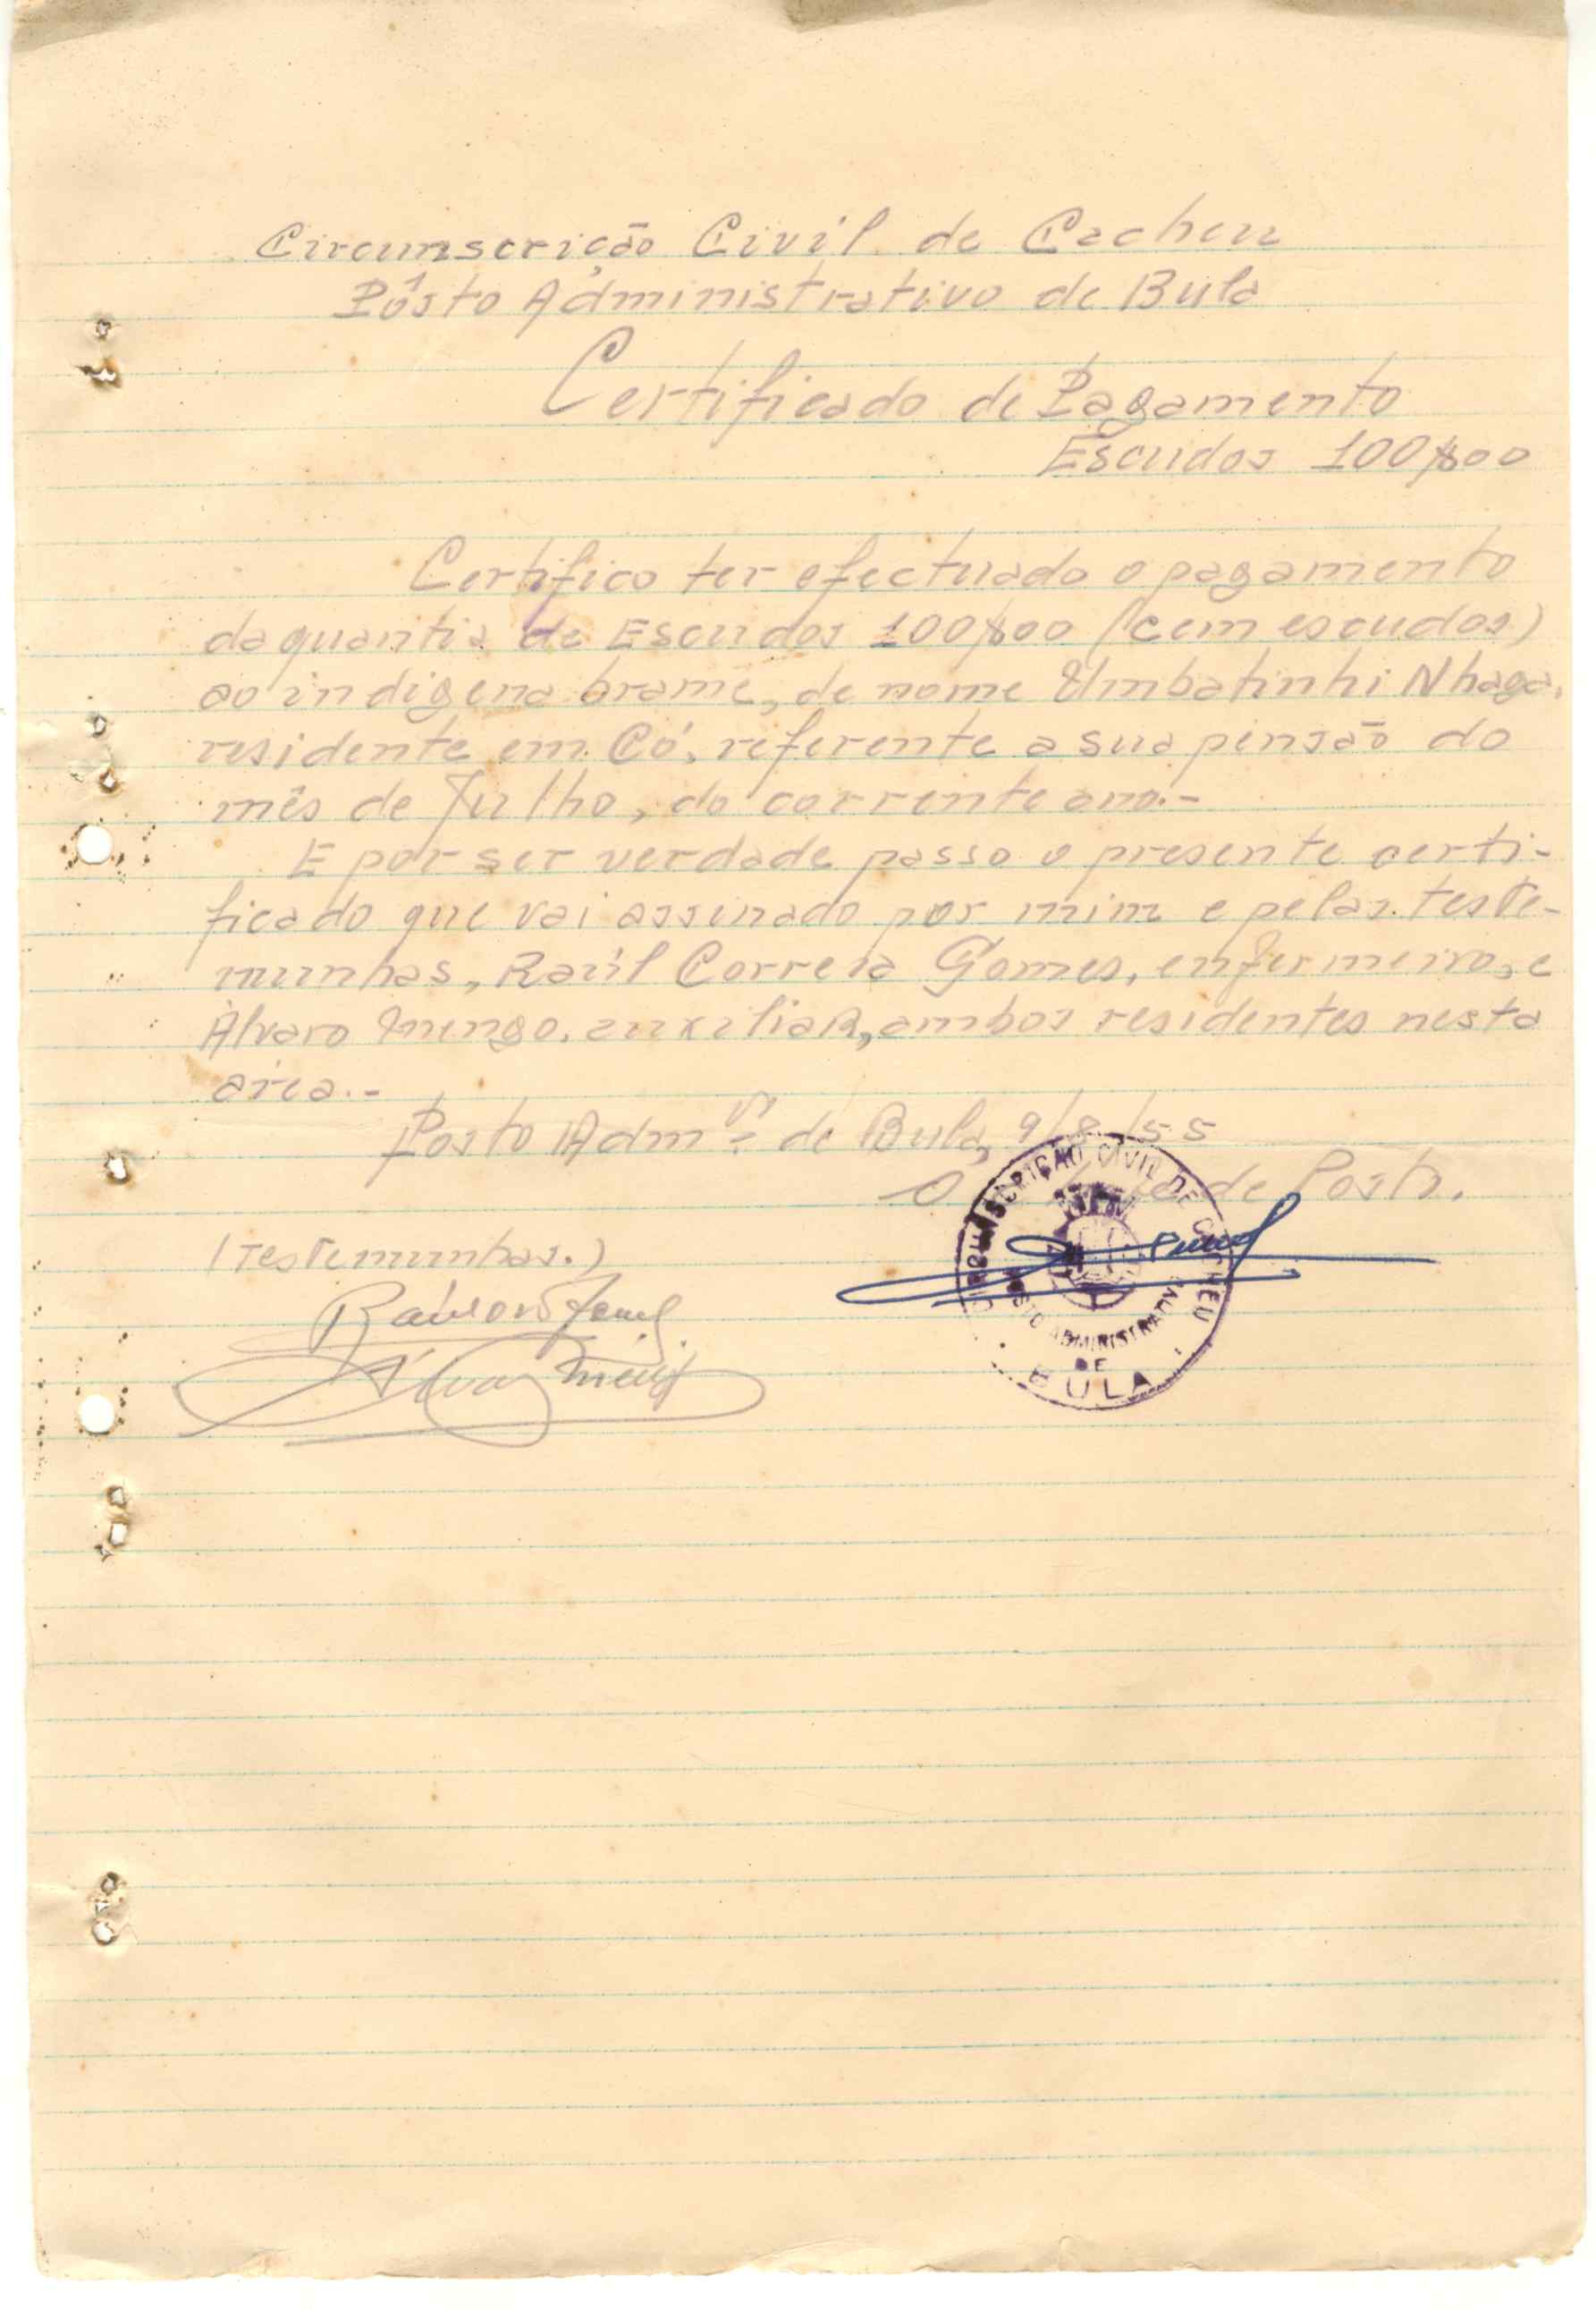 Circunscrição Civil de Cacheu
Pôsto Administrativo de Bula
Certificado de Pagamento
Escudos 100$00
Certifico ter efectuado o pagamento
da quantia de Escudos 100$00 (cem escudos)
ao indigena brame, de nome Umbatinhi Nhaga,
residente em Có, referente a sua pensão do
mês de Julho, do corrente ano.-
E por ser verdade passo o presente certi-
ficado que vai assinado por mim e pelas teste-
munhas, Raúl Correia Gomes, enfermeiro, e
Álvaro Iningo, auxiliar, ambos residentes nesta
área.-
Posto Admº de Bula, 9/8/55
O de Posto.
CIRCUNSCRIÇÃO CIVIL DE CACHEU
POSTO ADMINISTRATIVO
DE
BULA
(Testemunhas.)